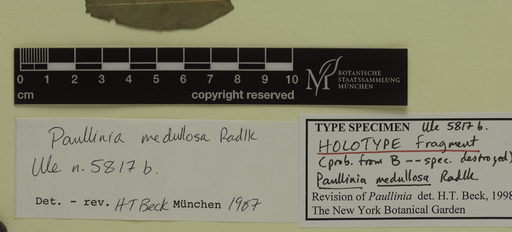 0 1 2 3 4 5 6 7 8 9 10
cm
copyright reserved
BOTANISCHE
STAATSSAMMLUNG
MÜNCHEN
Paullinia medullosa Radlk
Ule n. 5817 b.
Det. - rev. HT Beck München 1987
TYPE SPECIMEN Ule 5817 b.
HOLOTYPE Fragment
(prob. from B -- spec. destroyed)
Paullinia medullosa Radlk
Revision of Paullinia det. H.T. Beck, 1998
The New York Botanical Garden